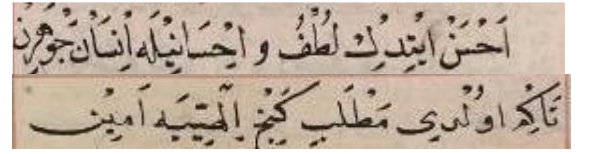 اَحْسَنْ ايْتِدِڭ لُطْفُ و اِحْسَانِيْلَه اَنِسَانْ جَوْهَرِنْ
تَاكِه اوُلْدِى مَطْلَبِ كَنْجِ اِلٰهِيَّيَه اَمِينْ